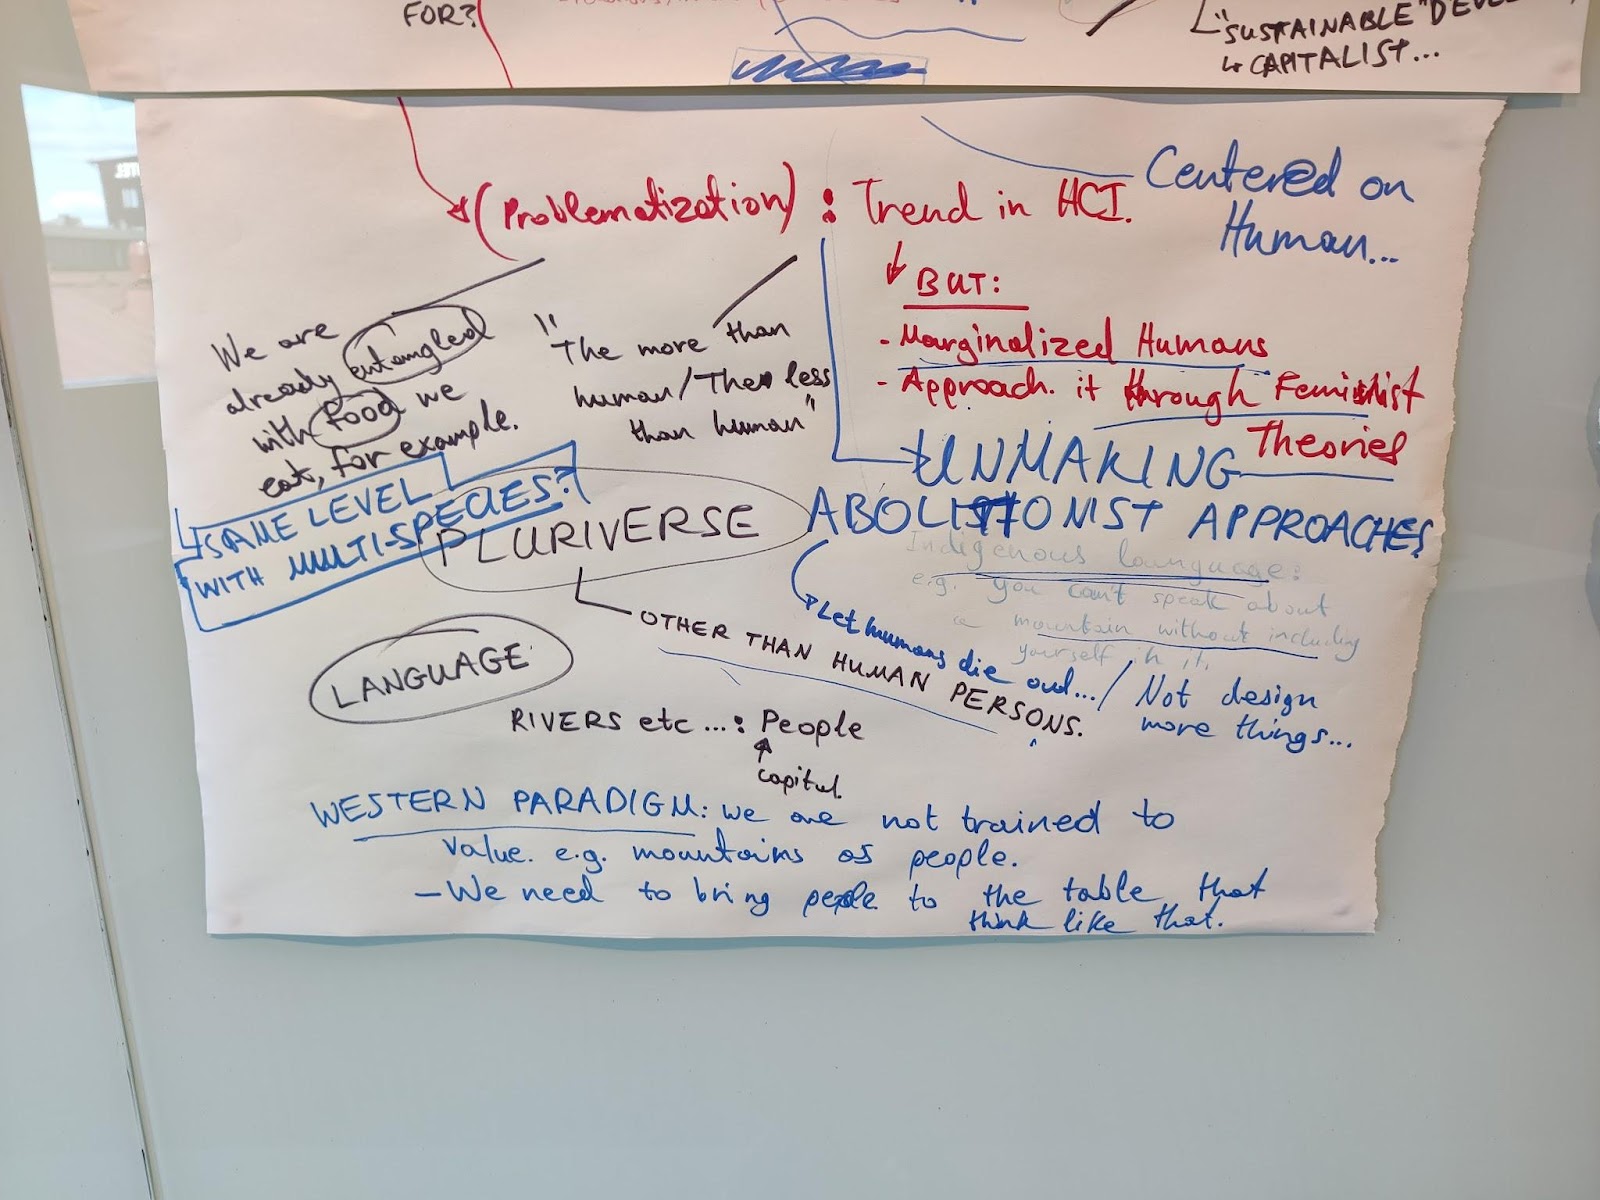 FOR?
"SUSTAINABLE"
↳ CAPITALIST...
(Problematization) : Trend in HCI.
Centered on
Human...
BUT:
- Marginalized Humans
- Approach it through Feminist
Theories
We are
already entangled
with food we
eat, for example.
"The more than
human/The less
than human"
UNMAKING
ABOLITIONIST APPROACHES
↳ SAME LEVEL
WITH MULTI-SPECIES?
PLURIVERSE
Indigenous language:
e.g. you can't speak about
a mountain without including
yourself in it.
OTHER THAN HUMAN PERSONS.
Let humans die out.../ Not design
more things...
LANGUAGE
RIVERS etc ... : People
capital.
WESTERN PARADIGM: we are not trained to
value. e.g. mountains as people.
- We need to bring people to the table that
think like that.